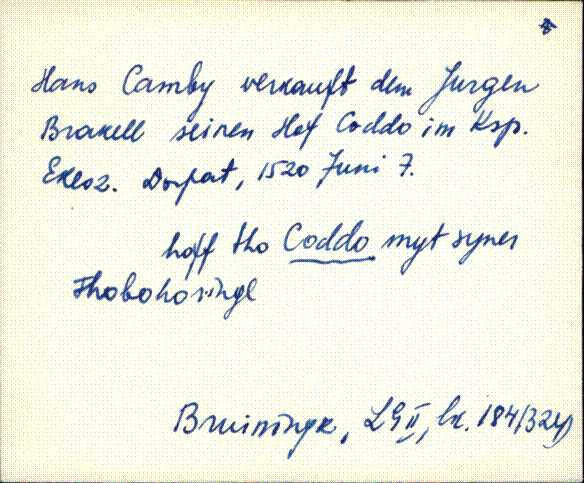 Hans Camby verkauft dem Jurgen
Brakell seinen Hof Coddo im Ksp.
Ekes. Dorpat, 1520 Juni 7.
hoff tho Coddo myt syner
Thobohoringe
Bruiningk, LG II, lk. 184/324)